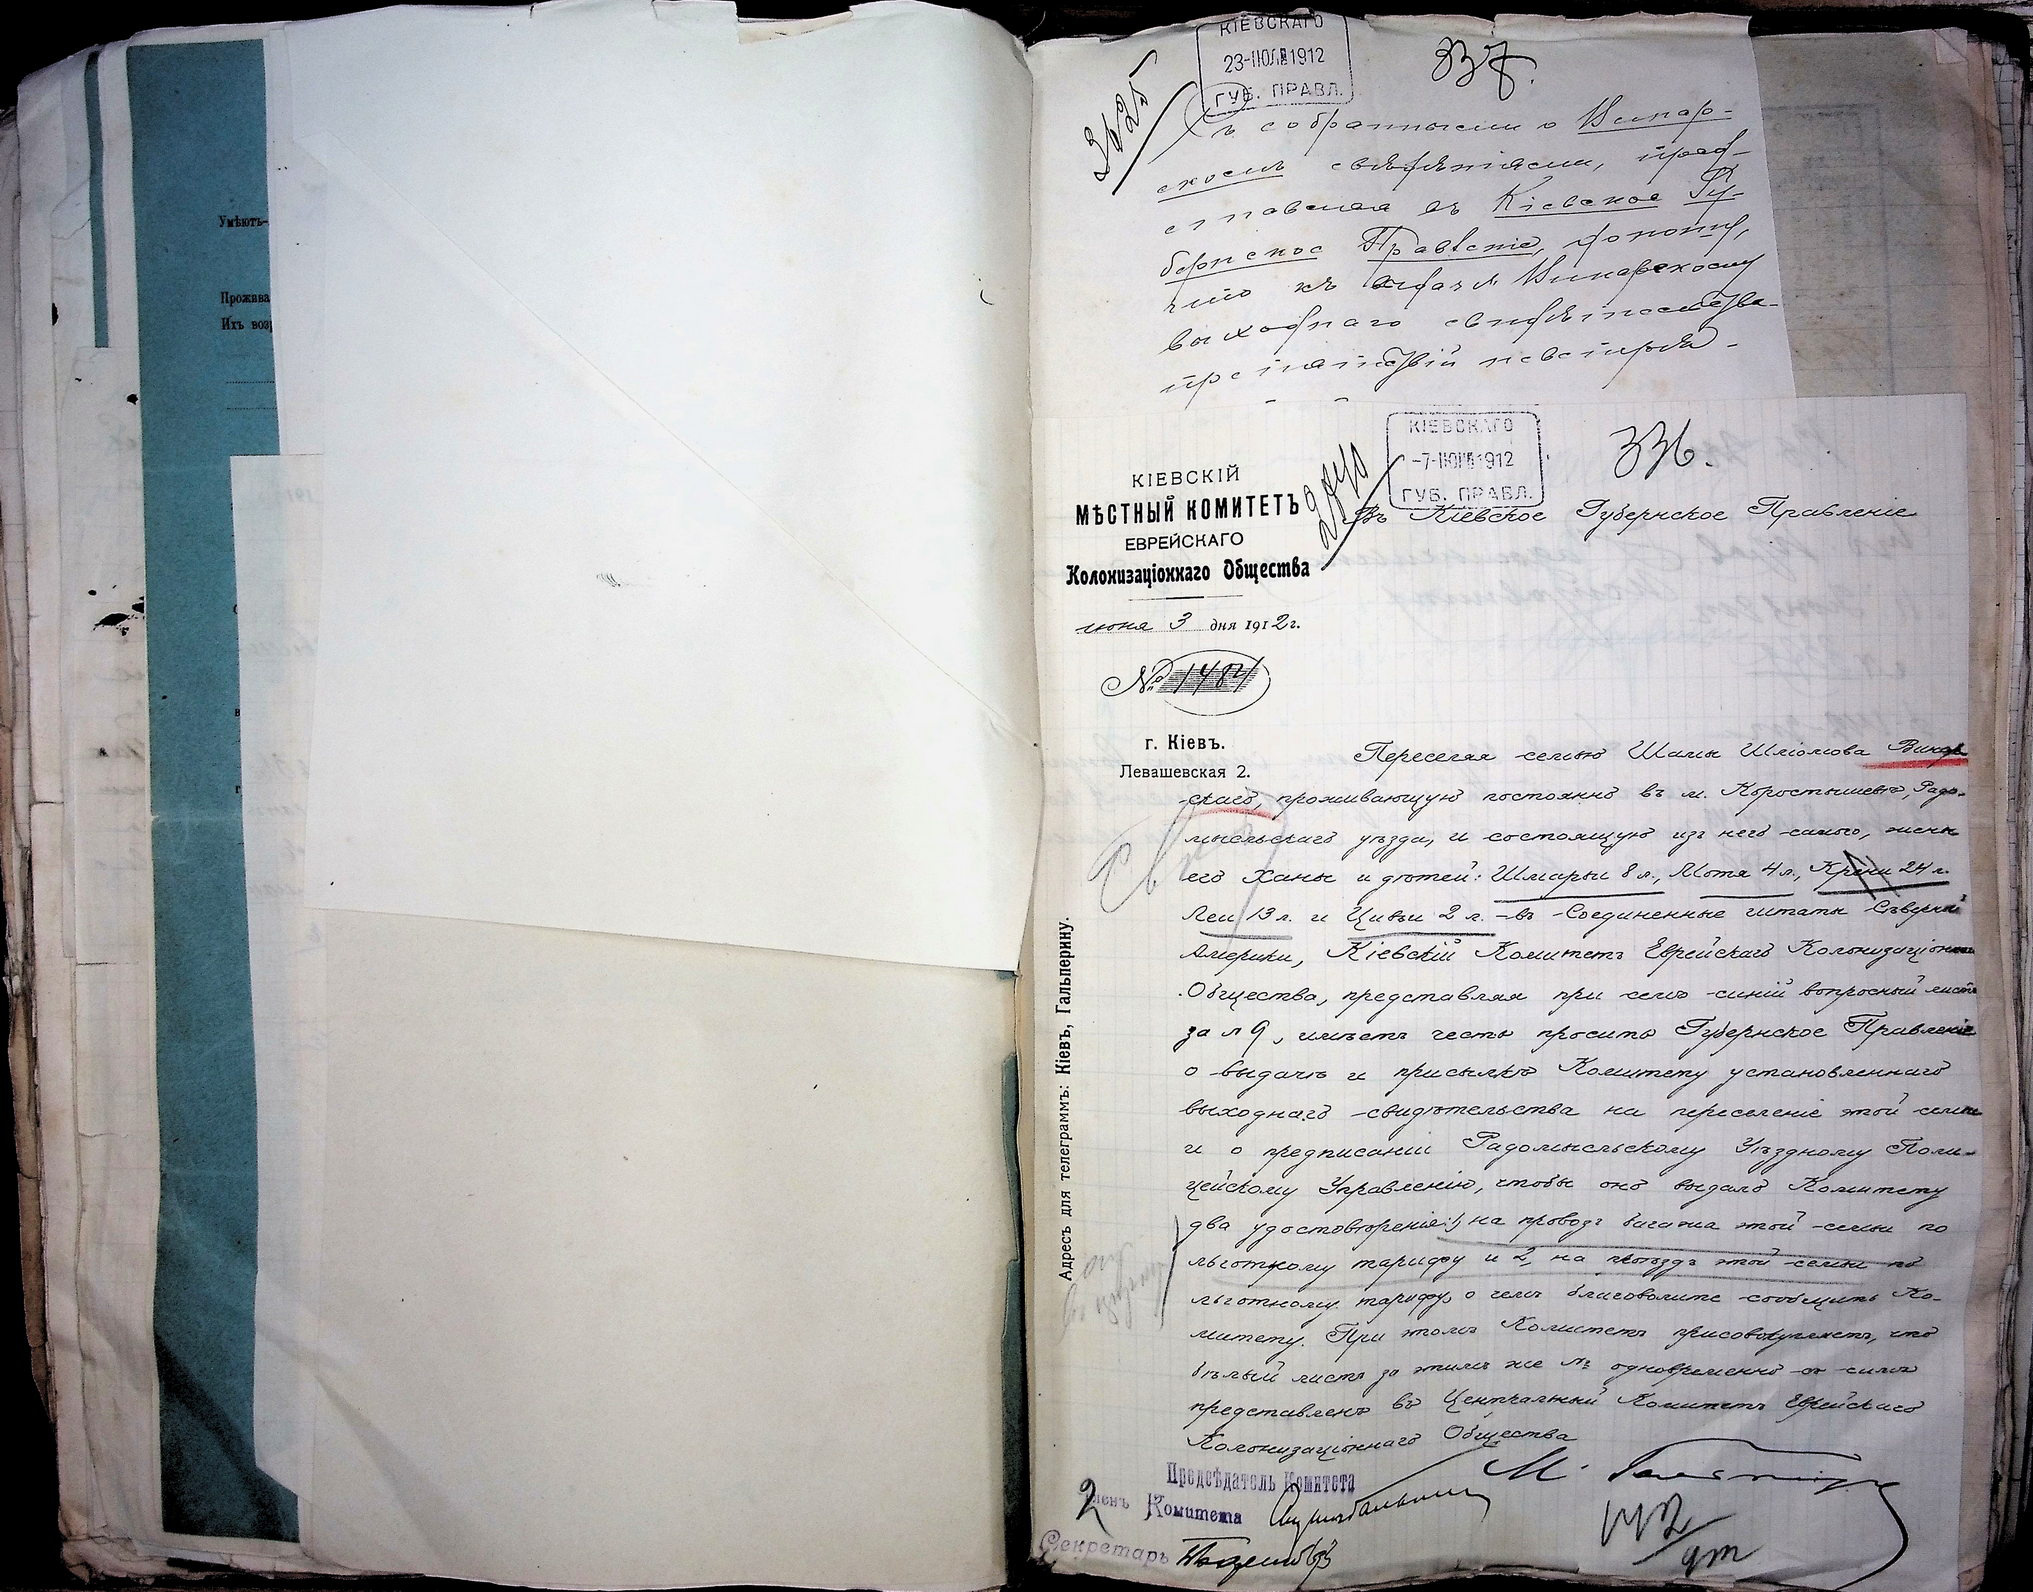 Умѣютъ-
Прожива
Ихъ возр
КІЕВСКАГО
23-ІЮЛЯ1912
ГУБ. ПРАВЛ.
337.
3625
Съ собранными о Винар-
скомъ свѣдѣніями, пред-
ставляя въ Кіевское Гу-
бернское Правленіе, доношу,
что къ выдачѣ Винарскому
выходного свидѣтельства
препятствій не встрѣча-
КІЕВСКАГО
-7-ІЮНЯ1912
ГУБ. ПРАВЛ.
336.
КІЕВСКІЙ
МѢСТНЫЙ КОМИТЕТЪ
ЕВРЕЙСКАГО
Колонизаціоннаго Общества
Въ Кіевское Губернское Правленіе
июня 3 дня 1912 г.
№ 1484
г. Кіевъ.
Левашевская 2.
Адресъ для телеграммъ: Кіевъ, Гальперину.
Переселяя семью Шамы Шліомова
-скаго, проживающую постоянно въ м. Коростышевѣ, Радо-
мысльскаго уѣзда, и состоящую изъ него самого, жены
его Ханы и дѣтей: Шмарьи 8 л., Мотя 4 л., Крени 24 л.
Леи 13 л. и Цивьи 2 л. - въ Соединенные штаты Сѣверной
Америки, Кіевскій Комитетъ Еврейскаго Колонизаціоннаго
Общества, представляя при семъ синій вопросный листъ
за № 9, имѣетъ честь просить Губернское Правленіе
о выдачѣ и присылкѣ Комитету установленнаго
выходнаго свидѣтельства на переселеніе этой семьи
и о предписаніи Радомысльскому Уѣздному Поли-
цейскому Управленію, чтобы оно выдало Комитету
два удостовѣренія: 1, на провозъ багажа этой семьи по
льготному тарифу и 2, на проѣздъ этой семьи по
льготному тарифу, о чемъ благоволите сообщить Ко-
митету. При этомъ Комитетъ присовокупляетъ, что
бѣлый листъ за этимъ же № одновременно съ симъ
представленъ въ Центральный Комитетъ Еврейскаго
Колонизаціоннаго Общества
Предсѣдатель Комитета
Членъ Комитета
Секретарь
2